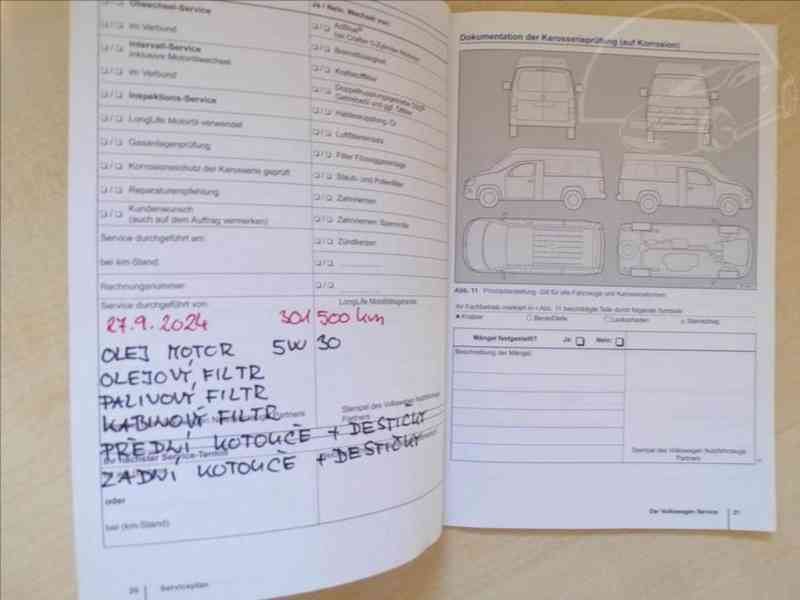 Ölwechsel-Service
im Verbund
Intervall-Service
inklusive Motorölwechsel
im Verbund
Inspektions-Service
LongLife Motoröl verwendet
Gasanlagenprüfung
Korrosionsschutz der Karosserie geprüft
Reparaturempfehlung
Kundenwunsch
(auch auf dem Auftrag vermerken)
Service durchgeführt am:
bei km-Stand:
Rechnungsnummer:
Service durchgeführt von:
Ja / Nein, Wechsel von:
AdBlue®
Bremsflüssigkeit
Kraftstofffilter
Haldexkupplung-Öl
Luftfiltereinsatz
Filter Flüssiggasanlage
Staub- und Pollenfilter
Zahnriemen
Zahnriemen-Spannrolle
Zündkerzen
LongLife Mobilitätsgarantie
27.9.2024 301 500 km
OLEJ MOTOR 5W30
OLEJOVÝ FILTR
PALIVOVÝ FILTR
KABINOVÝ FILTR
PŘEDNÍ KOTOUČE + DESTIČKY
ZADNÍ KOTOUČE + DESTIČKY
Stempel des Volkswagen Nutzfahrzeuge
Partners
Ihr nächster Service-Termin
oder
bei (km-Stand)
20 Serviceplan
Dokumentation der Karosserieprüfung (auf Korrosion)
Abb. 11 Prinzipdarstellung: Gilt für alle Fahrzeuge und Karosserieformen
Ihr Fachbetrieb markiert in » Abb. 11 beschädigte Teile durch folgende Symbole:
Kratzer Beule/Delle Lackschaden Steinschlag
Mängel festgestellt? Ja: Nein:
Beschreibung der Mängel:
Stempel des Volkswagen Nutzfahrzeuge
Partners
Der Volkswagen Service 21